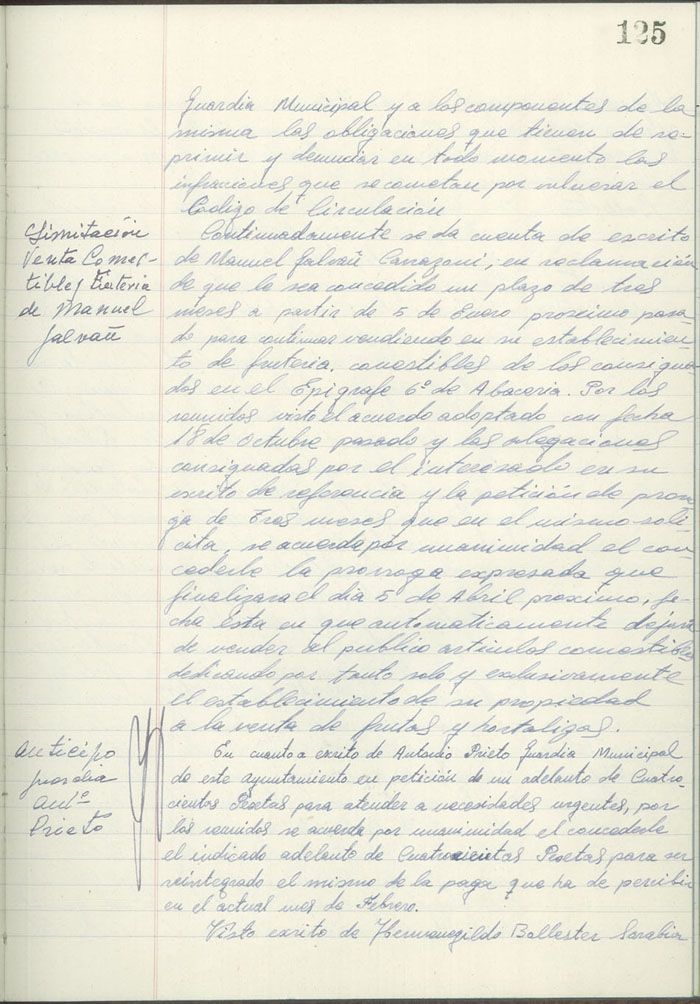 125
Guardia Municipal y a los componentes de la
misma las obligaciones que tienen de re-
primir y denunciar en todo momento las
infracciones que se cometan por vulnerar el
Codigo de Circulación
Limitación
Venta Comes-
tibles frutería
de Manuel
Galvañ
Continuadamente se da cuenta de escrito
de Manuel Galvañ, en reclamación
de que le sea concedido un plazo de tres
meses a partir de 5 de Enero proximo pasa-
do para continuar vendiendo en su establecimien-
to de fruteria, comestibles de los consigna-
dos en el Epigrafe 6º de Abaceria. Por los
reunidos visto el acuerdo adoptado con fecha
18 de Octubre pasado y las alegaciones
consignadas por el interesado en su
escrito de referencia y la petición de prorro-
ga de Tres meses que en el mismo soli-
cita, se acuerda por unanimidad el con-
cederle la prorroga expresada que
finalizara el dia 5 de Abril proximo, fe-
cha esta en que automaticamente dejara
de vender al publico articulos comestibles
dedicando por tanto solo y exclusivamente
el establecimiento de su propiedad
a la venta de frutas y hortalizas.
Anticipo
guardia
Antº
Prieto
En cuanto a escrito de Antonio Prieto Guardia Municipal
de este ayuntamiento en petición de un adelanto de Cuatro-
cientas Pesetas para atender a necesidades urgentes, por
los reunidos se acuerda por unanimidad el concederle
el indicado adelanto de Cuatrocientas Pesetas para ser
reintegrado el mismo de la paga que ha de percibir
en el actual mes de Febrero.
Visto escrito de Hermenegildo Ballester Sarabia